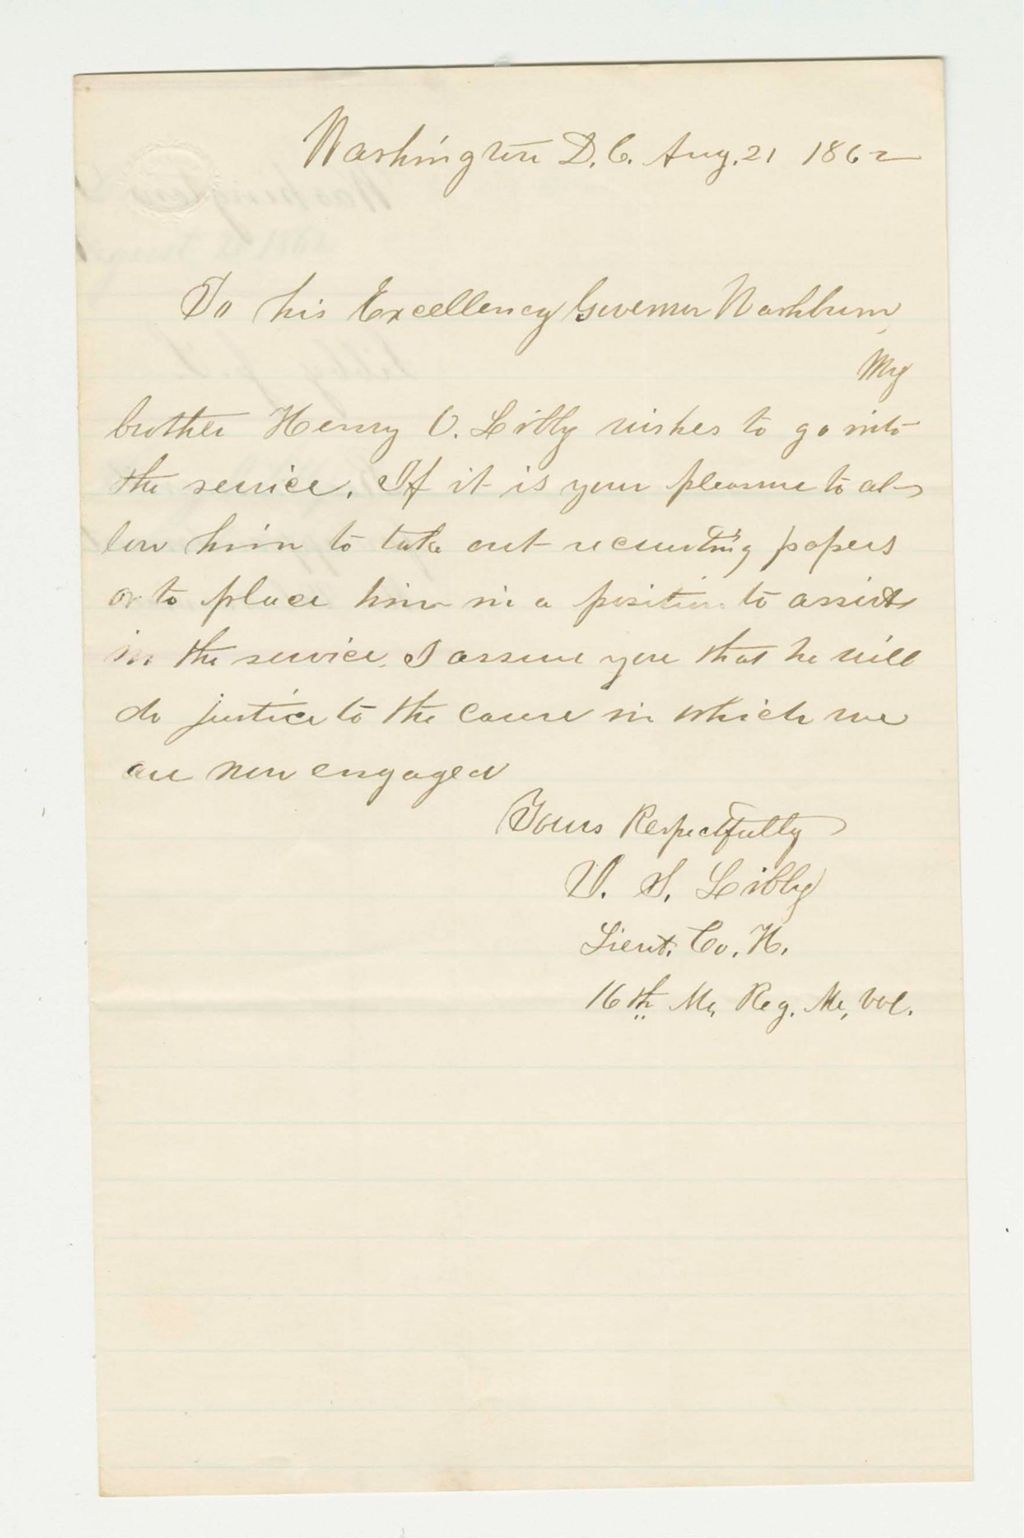 Washington D.C. Aug. 21 1862
To his Excellency Governor Washburn
My
brother Henry O. Libby wishes to go into
the service. If it is your pleasure to al-
low him to take out recruiting papers
or to place him in a position to assist
in the service, I assure you that he will
do justice to the cause in which we
are now engaged
Yours Respectfully
V. S. Libby
Lieut. Co. H.
16th Me. Reg. Me. Vol.